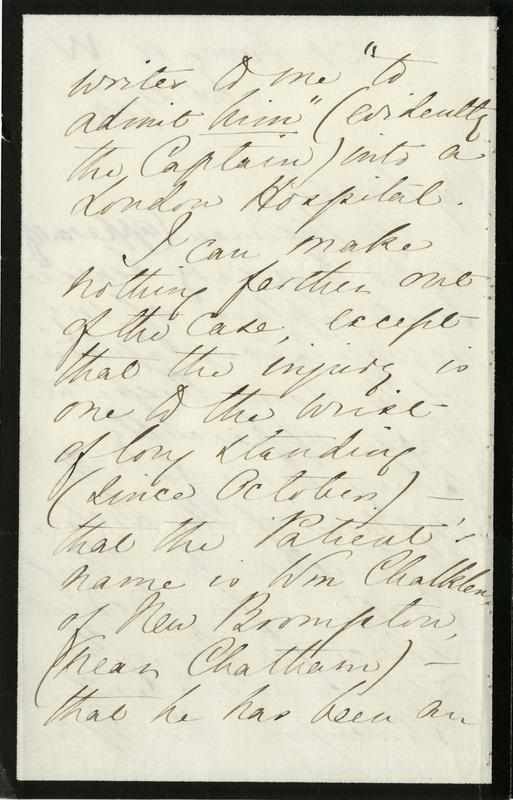 writes to me "to
admit him" (evidently
the Captain) into a
London Hospital.
I can make
nothing farther out
of the case, except
that the injury is
one to the wrist
of long standing
(since October) —
that the Patient's
name is Wm Chalklen
of New Brompton,
(near Chatham) —
that he has been an